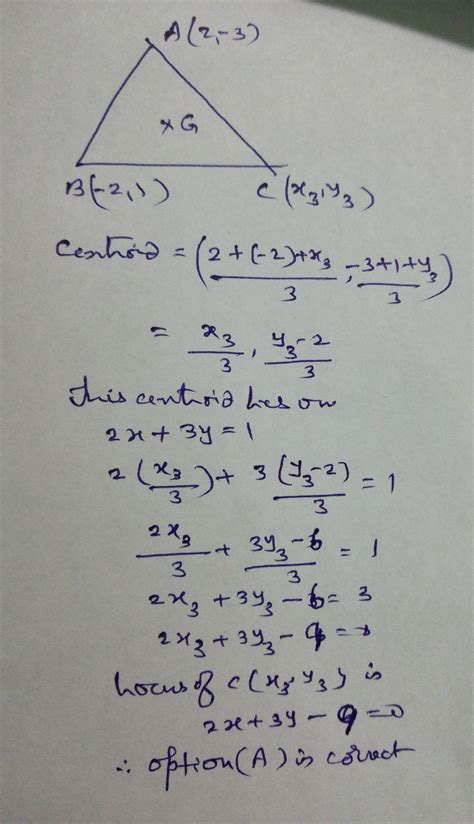 A(2,-3)
×G
B(-2,1) C(x₃,y₃)
Centroid = (2+(-2)+x₃/3, -3+1+y₃/3)
= x₃/3, y₃-2/3
This centroid lies on
2x + 3y = 1
2(x₃/3) + 3(y₃-2)/3 = 1
2x₃/3 + 3y₃-6/3 = 1
2x₃ + 3y₃ - 6 = 3
2x₃ + 3y₃ - 9 = 0
Locus of C(x₃,y₃) is
2x + 3y - 9 = 0
∴ option(A) is correct